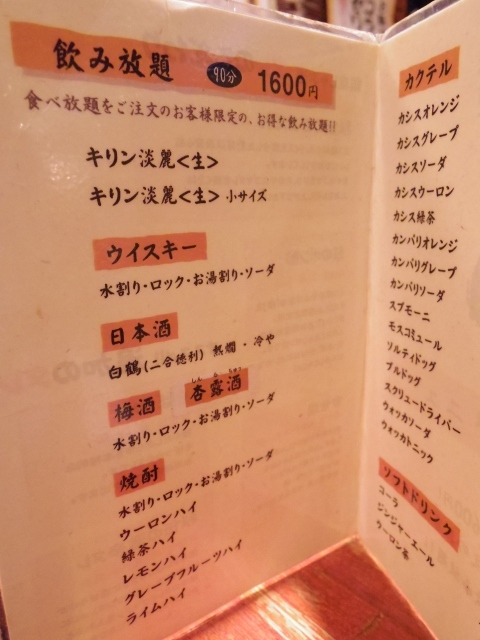 飲み放題 90分 1600円
食べ放題をご注文のお客様限定の、お得な飲み放題!!
キリン淡麗<生>
キリン淡麗<生> 小サイズ
ウイスキー
水割り・ロック・お湯割り・ソーダ
日本酒
白鶴(二合徳利) 熱燗・冷や
梅酒 杏露酒
水割り・ロック・お湯割り・ソーダ
焼酎
水割り・ロック・お湯割り・ソーダ
ウーロンハイ
緑茶ハイ
レモンハイ
グレープフルーツハイ
ライムハイ
カクテル
カシスオレンジ
カシスグレープ
カシスソーダ
カシスウーロン
カシス緑茶
カンパリオレンジ
カンパリグレープ
カンパリソーダ
スプモーニ
モスコミュール
ソルティドッグ
ブルドッグ
スクリュードライバー
ウォッカソーダ
ウォッカトニック
ソフトドリンク
コーラ
ジンジャーエール
ウーロン茶